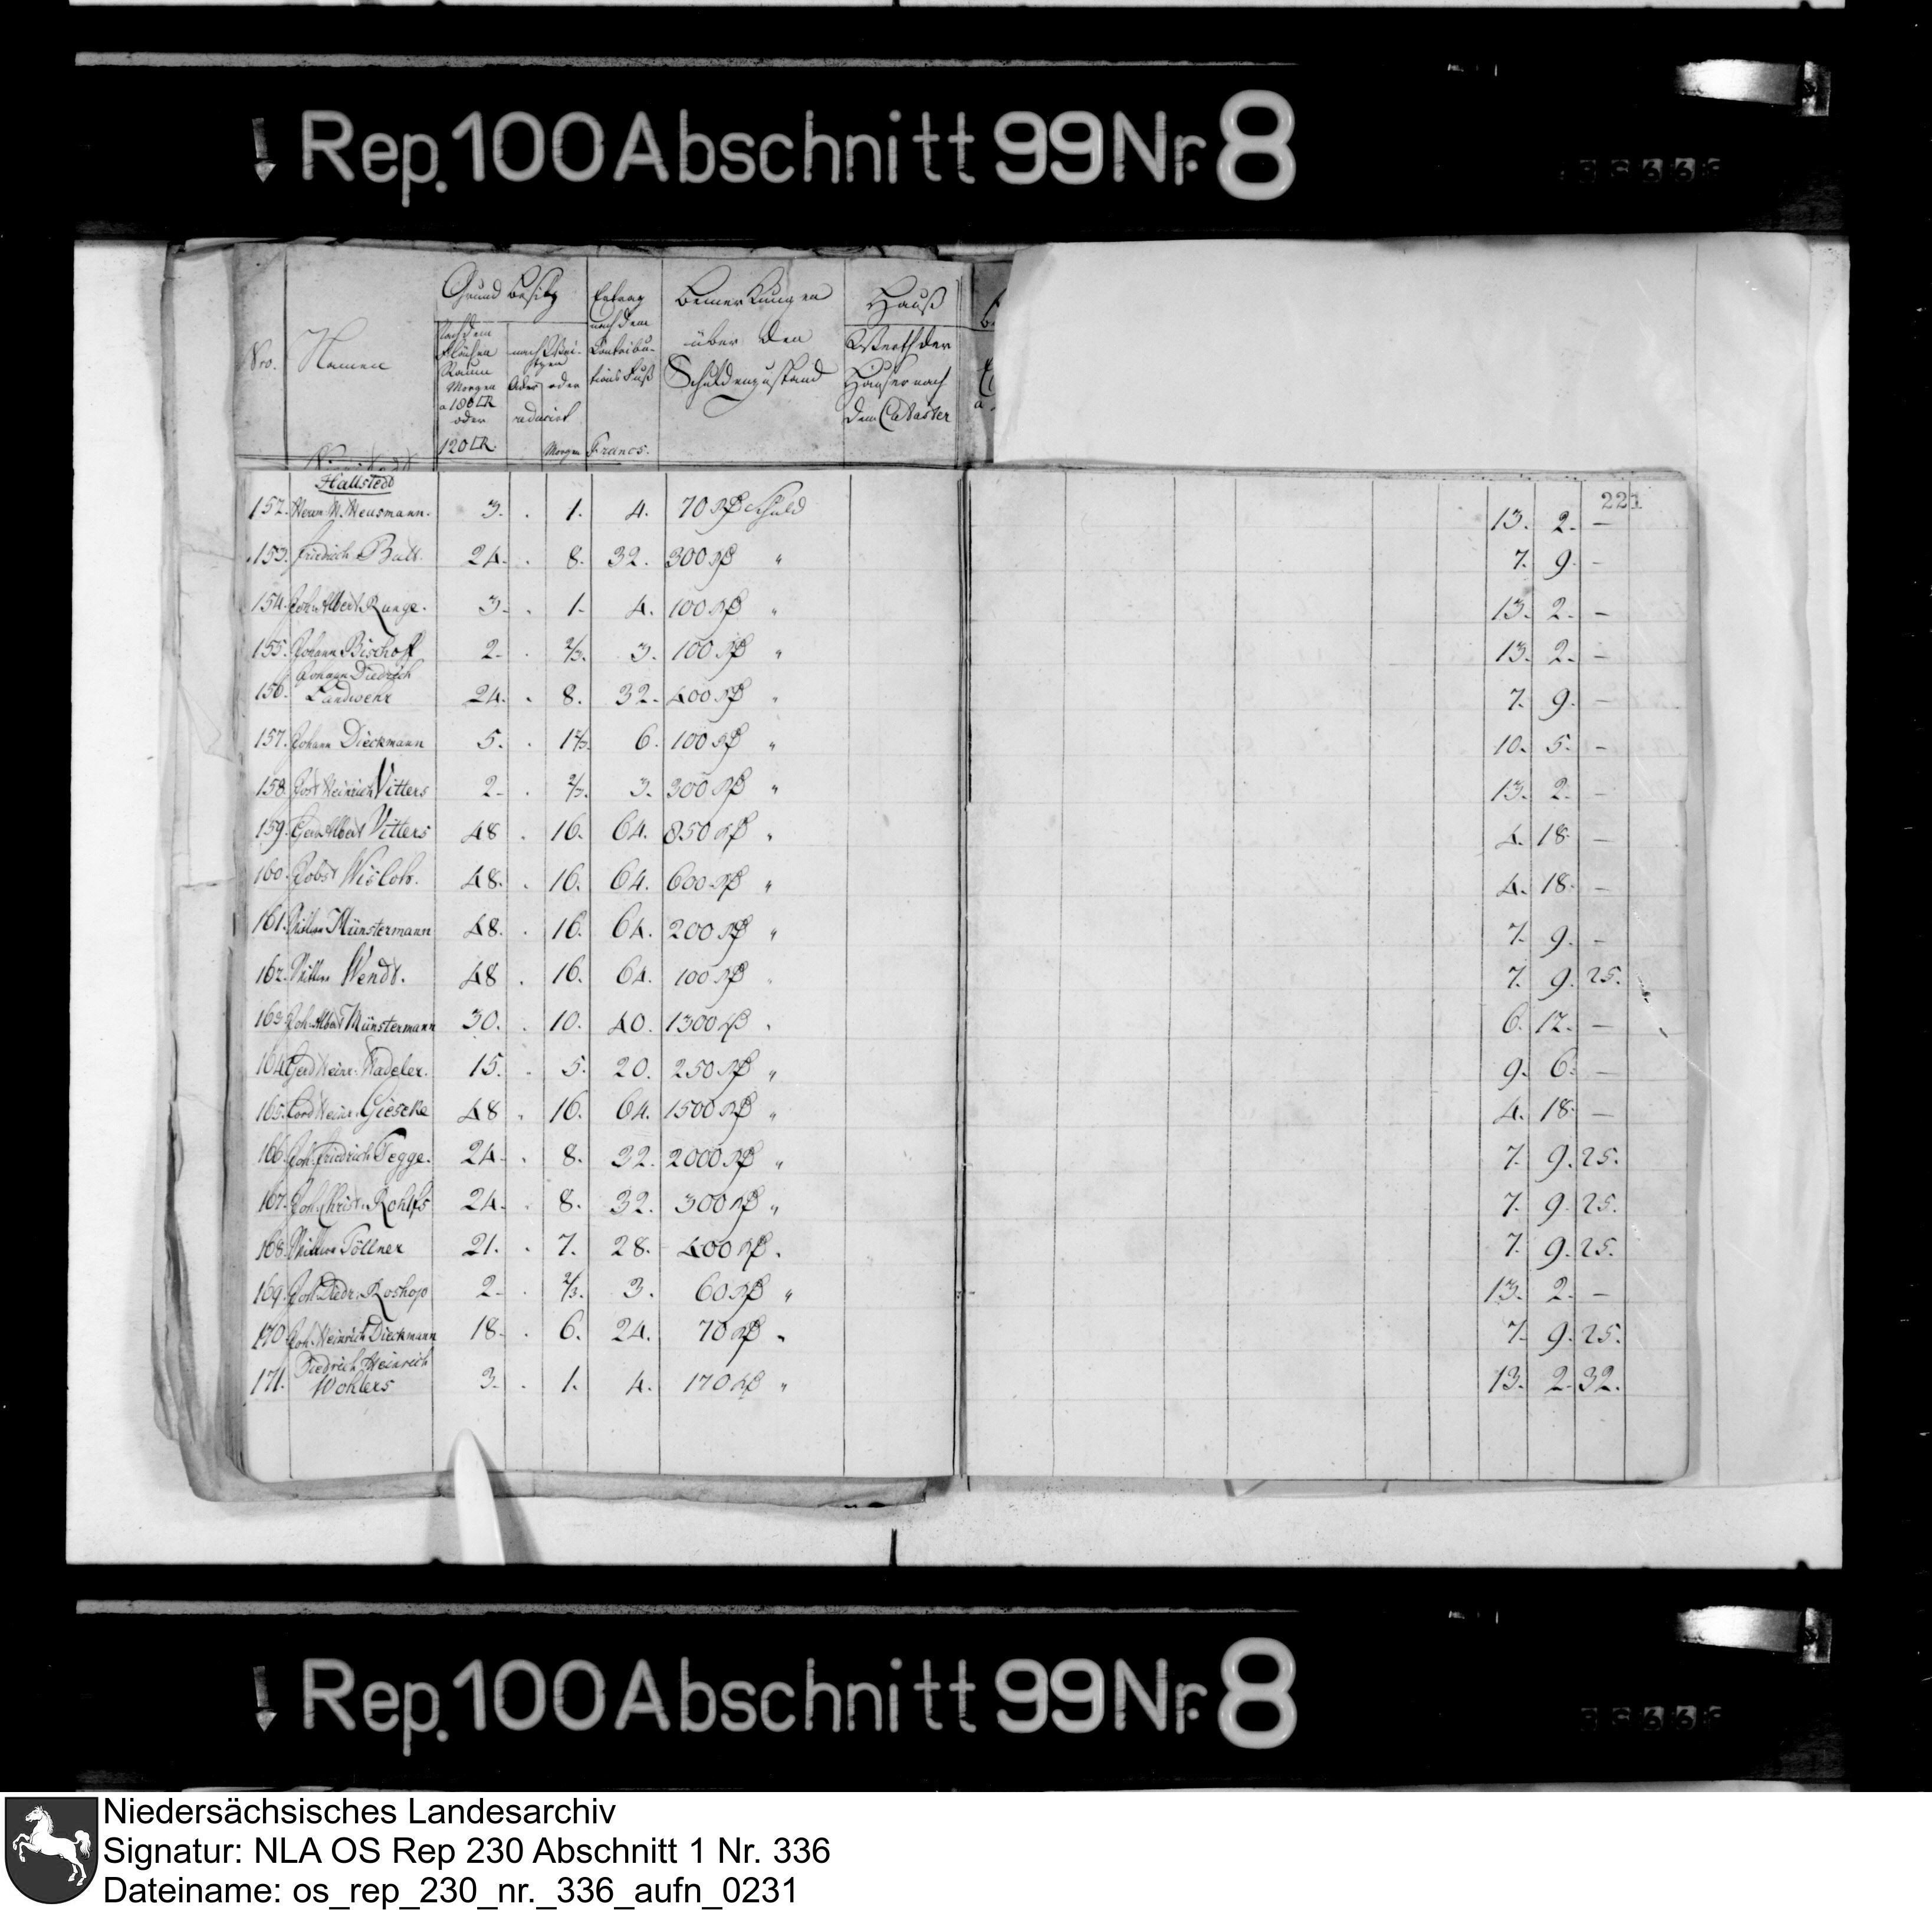 Rep. 100 Abschnitt 99 Nr. 8
Grund Besitz
Ertrag nach dem Contributions Fuß
Francs.
Bemerkungen über den Schuldenzustand
Hauß
Werth der Häuser nach dem Cataster
Nro. Namen
Nach dem Flächen Raum Morgen a 180 □R oder 120 □R.
reducirt
Morgen
Hallstedt
221
152. Herm W. Meusmann. 3. . 1. 4. 70 Rß Schuld 13. 2. –
153. Friedrich Butt. 24. . 8. 32. 300 Rß " 7. 9. –
154. Joh. Albert Runge. 3. . 1. 4. 100 Rß " 13. 2. –
155. Johann Bischoff 2. . 2/3. 3. 100 Rß " 13. 2. –
156. Johann Diedrich Landwehr 24. . 8. 32. 400 Rß " 7. 9. –
157. Johann Dieckmann 5. . 1 2/3. 6. 100 Rß " 10. 5. –
158. Heinrich Vitters 2. . 2/3. 3. 300 Rß " 13. 2. –
159. Gerd Albert Vitters 48 . 16. 64. 850 Rß " 4. 18. –
160. Jobst Wisloh. 48. . 16. 64. 600 Rß " 4. 18. –
161. Münstermann 48. . 16. 64. 200 Rß " 7. 9. –
162. Wendt. 48 . 16. 64. 100 Rß " 7. 9. 25.
163. Joh. Albert Münstermann 30. . 10. 40. 1300 Rß " 6. 12. –
164. Gerd Heinr. Wadeler. 15. . 5. 20. 250 Rß " 9. 6. –
165. Cord Heinr. Gieseke 48 . 16. 64. 1500 Rß " 4. 18. –
166. Joh. Friedrich Tegge. 24. . 8. 32. 2000 Rß " 7. 9. 25.
167. Joh. Christ. Rohlfs 24. . 8. 32. 300 Rß " 7. 9. 25.
168. Töllner 21. . 7. 28. 400 Rß " 7. 9. 25.
169. Diedr. Roshop 2. . 2/3. 3. 60 Rß " 13. 2. –
170. Joh. Heinrich Dieckmann 18. . 6. 24. 70 Rß " 7. 9. 25.
171. Diedrich Heinrich Wohlers 3. . 1. 4. 170 Rß " 13. 2. 32.
Rep. 100 Abschnitt 99 Nr. 8
Niedersächsisches Landesarchiv
Signatur: NLA OS Rep 230 Abschnitt 1 Nr. 336
Dateiname: os_rep_230_nr._336_aufn_0231